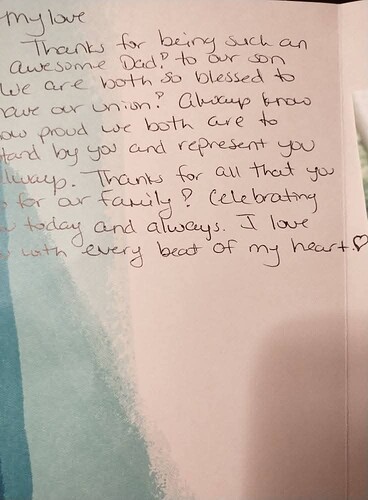 My love
Thanks for being such an
awesome Dad? to our son
We are both so blessed to
have our union? Always know
how proud we both are to
stand by you and represent you
always. Thanks for all that you
for our family? Celebrating
today and always. I love
with every beat of my heart.♡